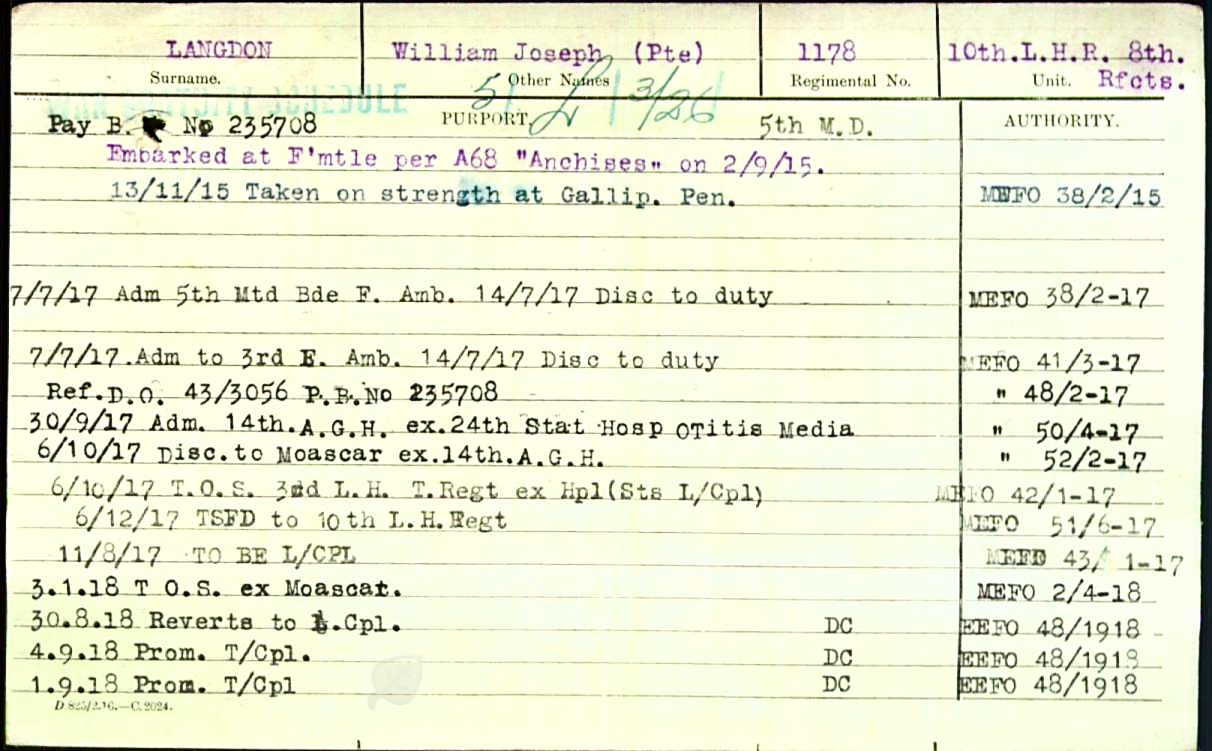 LANGDON William Joseph (Pte) 1178 10th.L.H.R. 8th.
Surname. Other Names Regimental No. Unit. Rfcts.
WAR GRATUITY SCHEDULE 51 3/26
Pay B. No 235708 PURPORT. 5th M.D. AUTHORITY.
Embarked at F'mtle per A68 "Anchises" on 2/9/15.
13/11/15 Taken on strength at Gallip. Pen. MEFO 38/2/15
7/7/17 Adm 5th Mtd Bde F. Amb. 14/7/17 Disc to duty MEFO 38/2-17
7/7/17.Adm to 3rd F. Amb. 14/7/17 Disc to duty MEFO 41/3-17
Ref.D.O. 43/3056 P.B.No 235708 " 48/2-17
30/9/17 Adm. 14th.A.G.H. ex.24th Stat Hosp OTitis Media " 50/4-17
6/10/17 Disc.to Moascar ex.14th.A.G.H. " 52/2-17
6/10/17 T.O.S. 3rd L.H. T.Regt ex Hpl(Sts L/Cpl) MEFO 42/1-17
6/12/17 TSFD to 10th L.H.Regt MEFO 51/6-17
11/8/17 TO BE L/CPL MEFO 43/ 1-17
3.1.18 T O.S. ex Moascat. MEFO 2/4-18
30.8.18 Reverts to L.Cpl. DC EEFO 48/1918
4.9.18 Prom. T/Cpl. DC EEFO 48/1918
1.9.18 Prom. T/Cpl DC EEFO 48/1918
D.825/2.16.—C.2024.